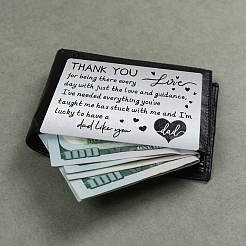 THANK YOU
for being there every
day with just the love and guidance,
I've needed everything you've
taught me has stuck with me and I'm
lucky to have a
dad like you
Love
dad